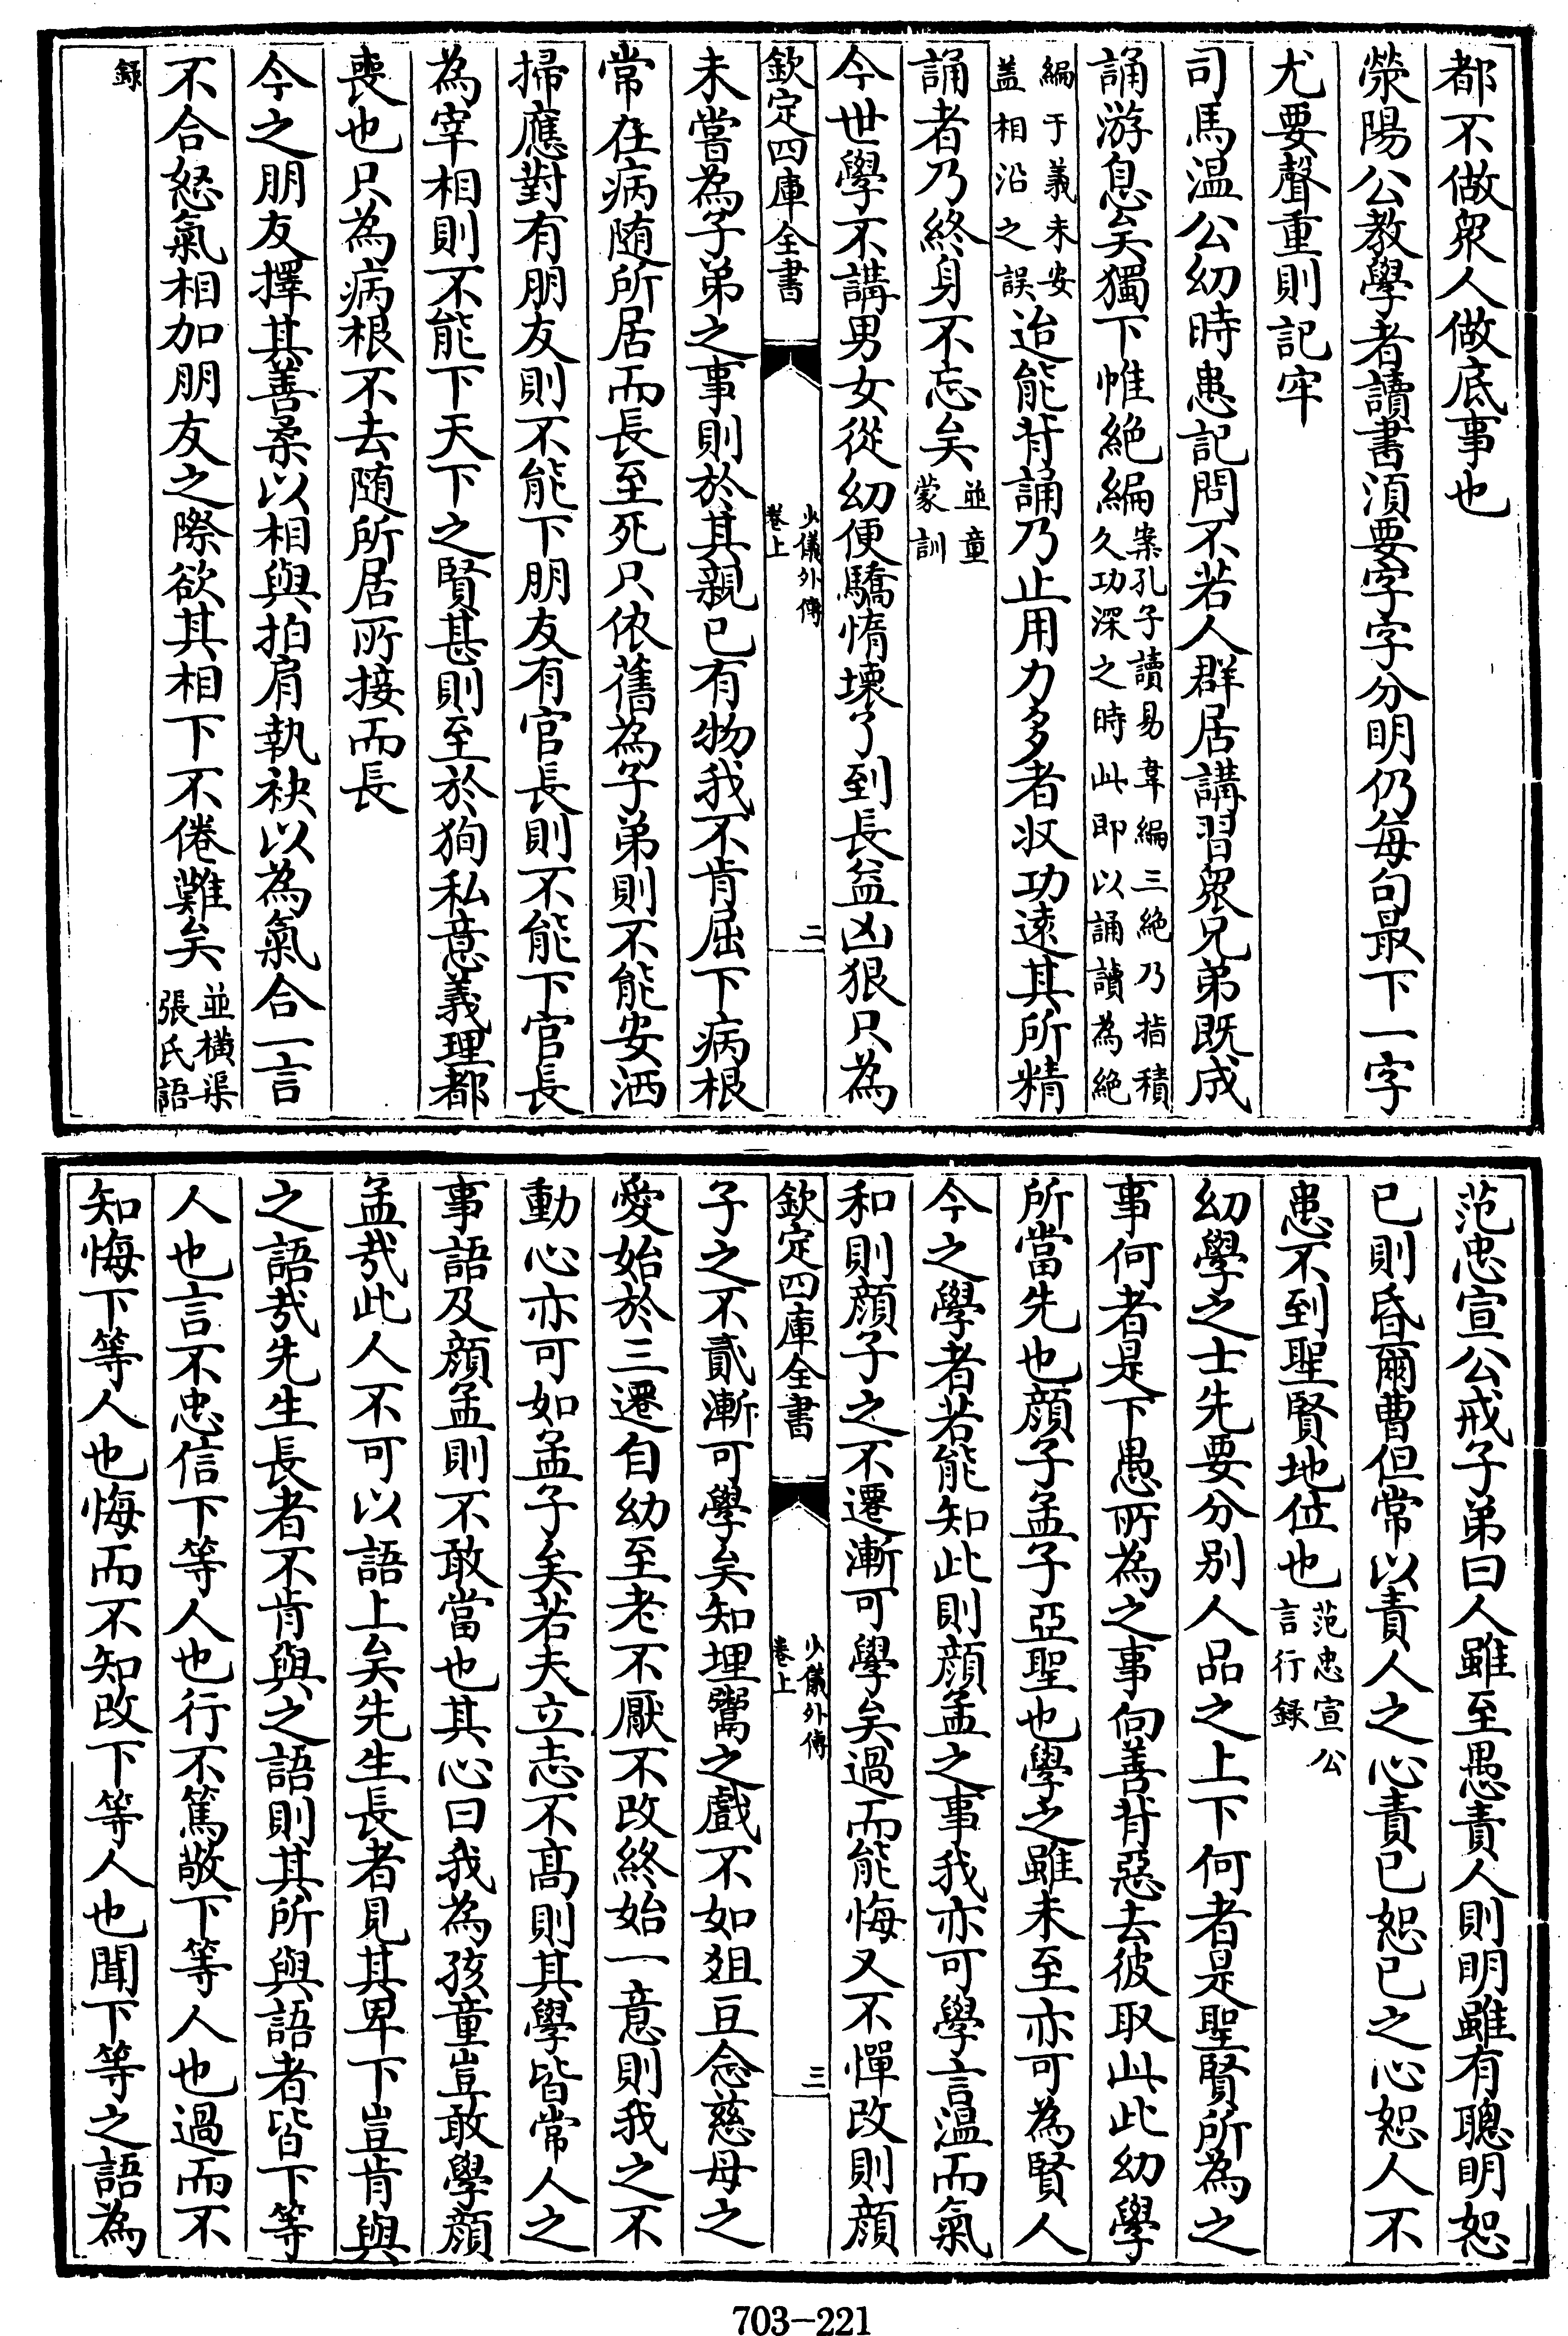 都不做衆人做底事也
滎陽公教學者讀書湏要字字分明仍每句最下一字
尤要聲重則記牢
司馬温公幼時患記問不若人群居講習衆兄弟既成
誦游息矣獨下帷絶編案孔子讀易韋編三絶乃指積
久功深之時此即以誦讀為絶
編于義未安
盖相沿之誤迨能背誦乃止用力多者収功逺其所精
誦者乃終身不忘矣並童
蒙訓
今世學不講男女從幼便驕惰壊了到長益凶狠只為
欽定四庫全書
少儀外傳
卷上
二
未嘗為子弟之事則於其親已有物我不肯屈下病根
常在病随所居而長至死只依舊為子弟則不能安洒
掃應對有朋友則不能下朋友有官長則不能下官長
為宰相則不能下天下之賢甚則至於狥私意義理都
喪也只為病根不去随所居所接而長
今之朋友擇其善柔以相與拍肩執袂以為氣合一言
不合怒氣相加朋友之際欲其相下不倦難矣並横渠
張氏語
録
范忠宣公戒子弟曰人雖至愚責人則明雖有聰明恕
已則昏爾曹但常以責人之心責已恕已之心恕人不
患不到聖賢地位也范忠宣公
言行録
幼學之士先要分别人品之上下何者是聖賢所為之
事何者是下愚所為之事向善背惡去彼取此此幼學
所當先也顔子孟子亞聖也學之雖未至亦可為賢人
今之學者若能知此則顔孟之事我亦可學言温而氣
和則顔子之不遷漸可學矣過而能悔又不憚改則顔
欽定四庫全書
少儀外傳
卷上
三
子之不貳漸可學矣知埋鬻之戲不如俎豆念慈母之
愛始於三遷自幼至老不厭不改終始一意則我之不
動心亦可如孟子矣若夫立志不髙則其學皆常人之
事語及顔孟則不敢當也其心曰我為孩童豈敢學顔
孟㢤此人不可以語上矣先生長者見其卑下豈肯與
之語㢤先生長者不肯與之語則其所與語者皆下等
人也言不忠信下等人也行不篤敬下等人也過而不
知悔下等人也悔而不知改下等人也聞下等之語為
703-221